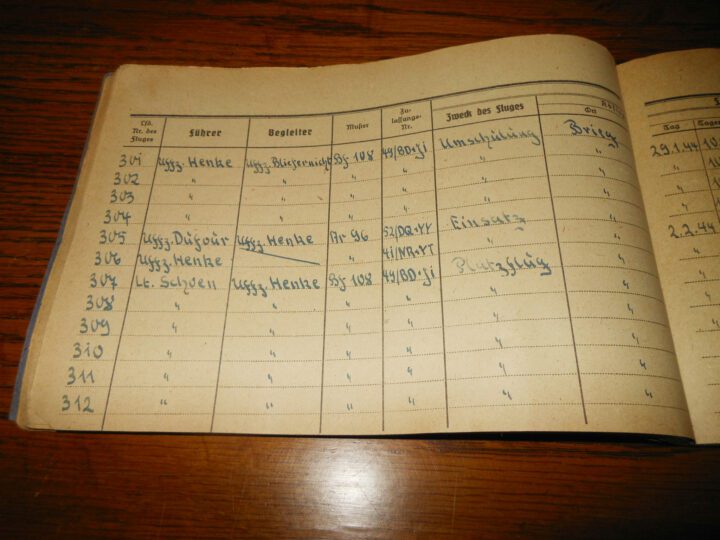 Lfd. Nr. des Fluges Führer Begleiter Muster Zulassungs-Nr. Zweck des Fluges Ort Tag
301 Uffz. Henke Uffz. Bliefernicht Bf 108 49/BD+Ji Umschulung Brieg 29.1.44
302 " " " " " "
303 " " " " " "
304 " " " " " "
305 Uffz. Dufour Uffz. Henke Ar 96 52/DQ+YY Einsatz " 2.2.44
306 Uffz. Henke " 41/NR+YT " "
307 Lt. Schoen Uffz. Henke Bf 108 49/BD+Ji Platzflug "
308 " " " " " "
309 " " " " " "
310 " " " " " "
311 " " " " " "
312 " " " " " "